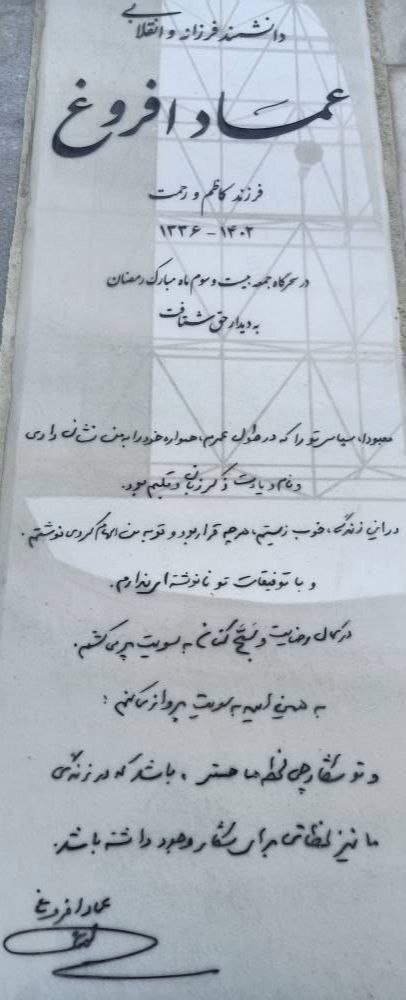 دانشمند فرزانه و انقلابی
عماد افروغ
فرزند کاظم و رحمت
۱۳۳۶ - ۱۴۰۲
در سحرگاه جمعه بیست و سوم ماه مبارک رمضان
به دیدار حق شتافت
معبودا، سپاس تو را که در طول عمرم، همواره خود را به من نشان دادی
و نام و یادت ذکر زبان و قلبم بود.
در این زندگی، خوب زیستم، هرچه قرار بود و تو به من الهام کردی نوشتم.
و با توفیقات تو نانوشته‌ای ندارم.
در کمال رضایت و تسبیح کنان به سویت پر می‌کشم.
به همین امید به سویت پرواز می‌کنم:
و تو شکارچی لحظه‌ها هستی، باشد که در زندگی
ما نیز لحظاتی برای شکار وجود داشته باشد.
عماد افروغ